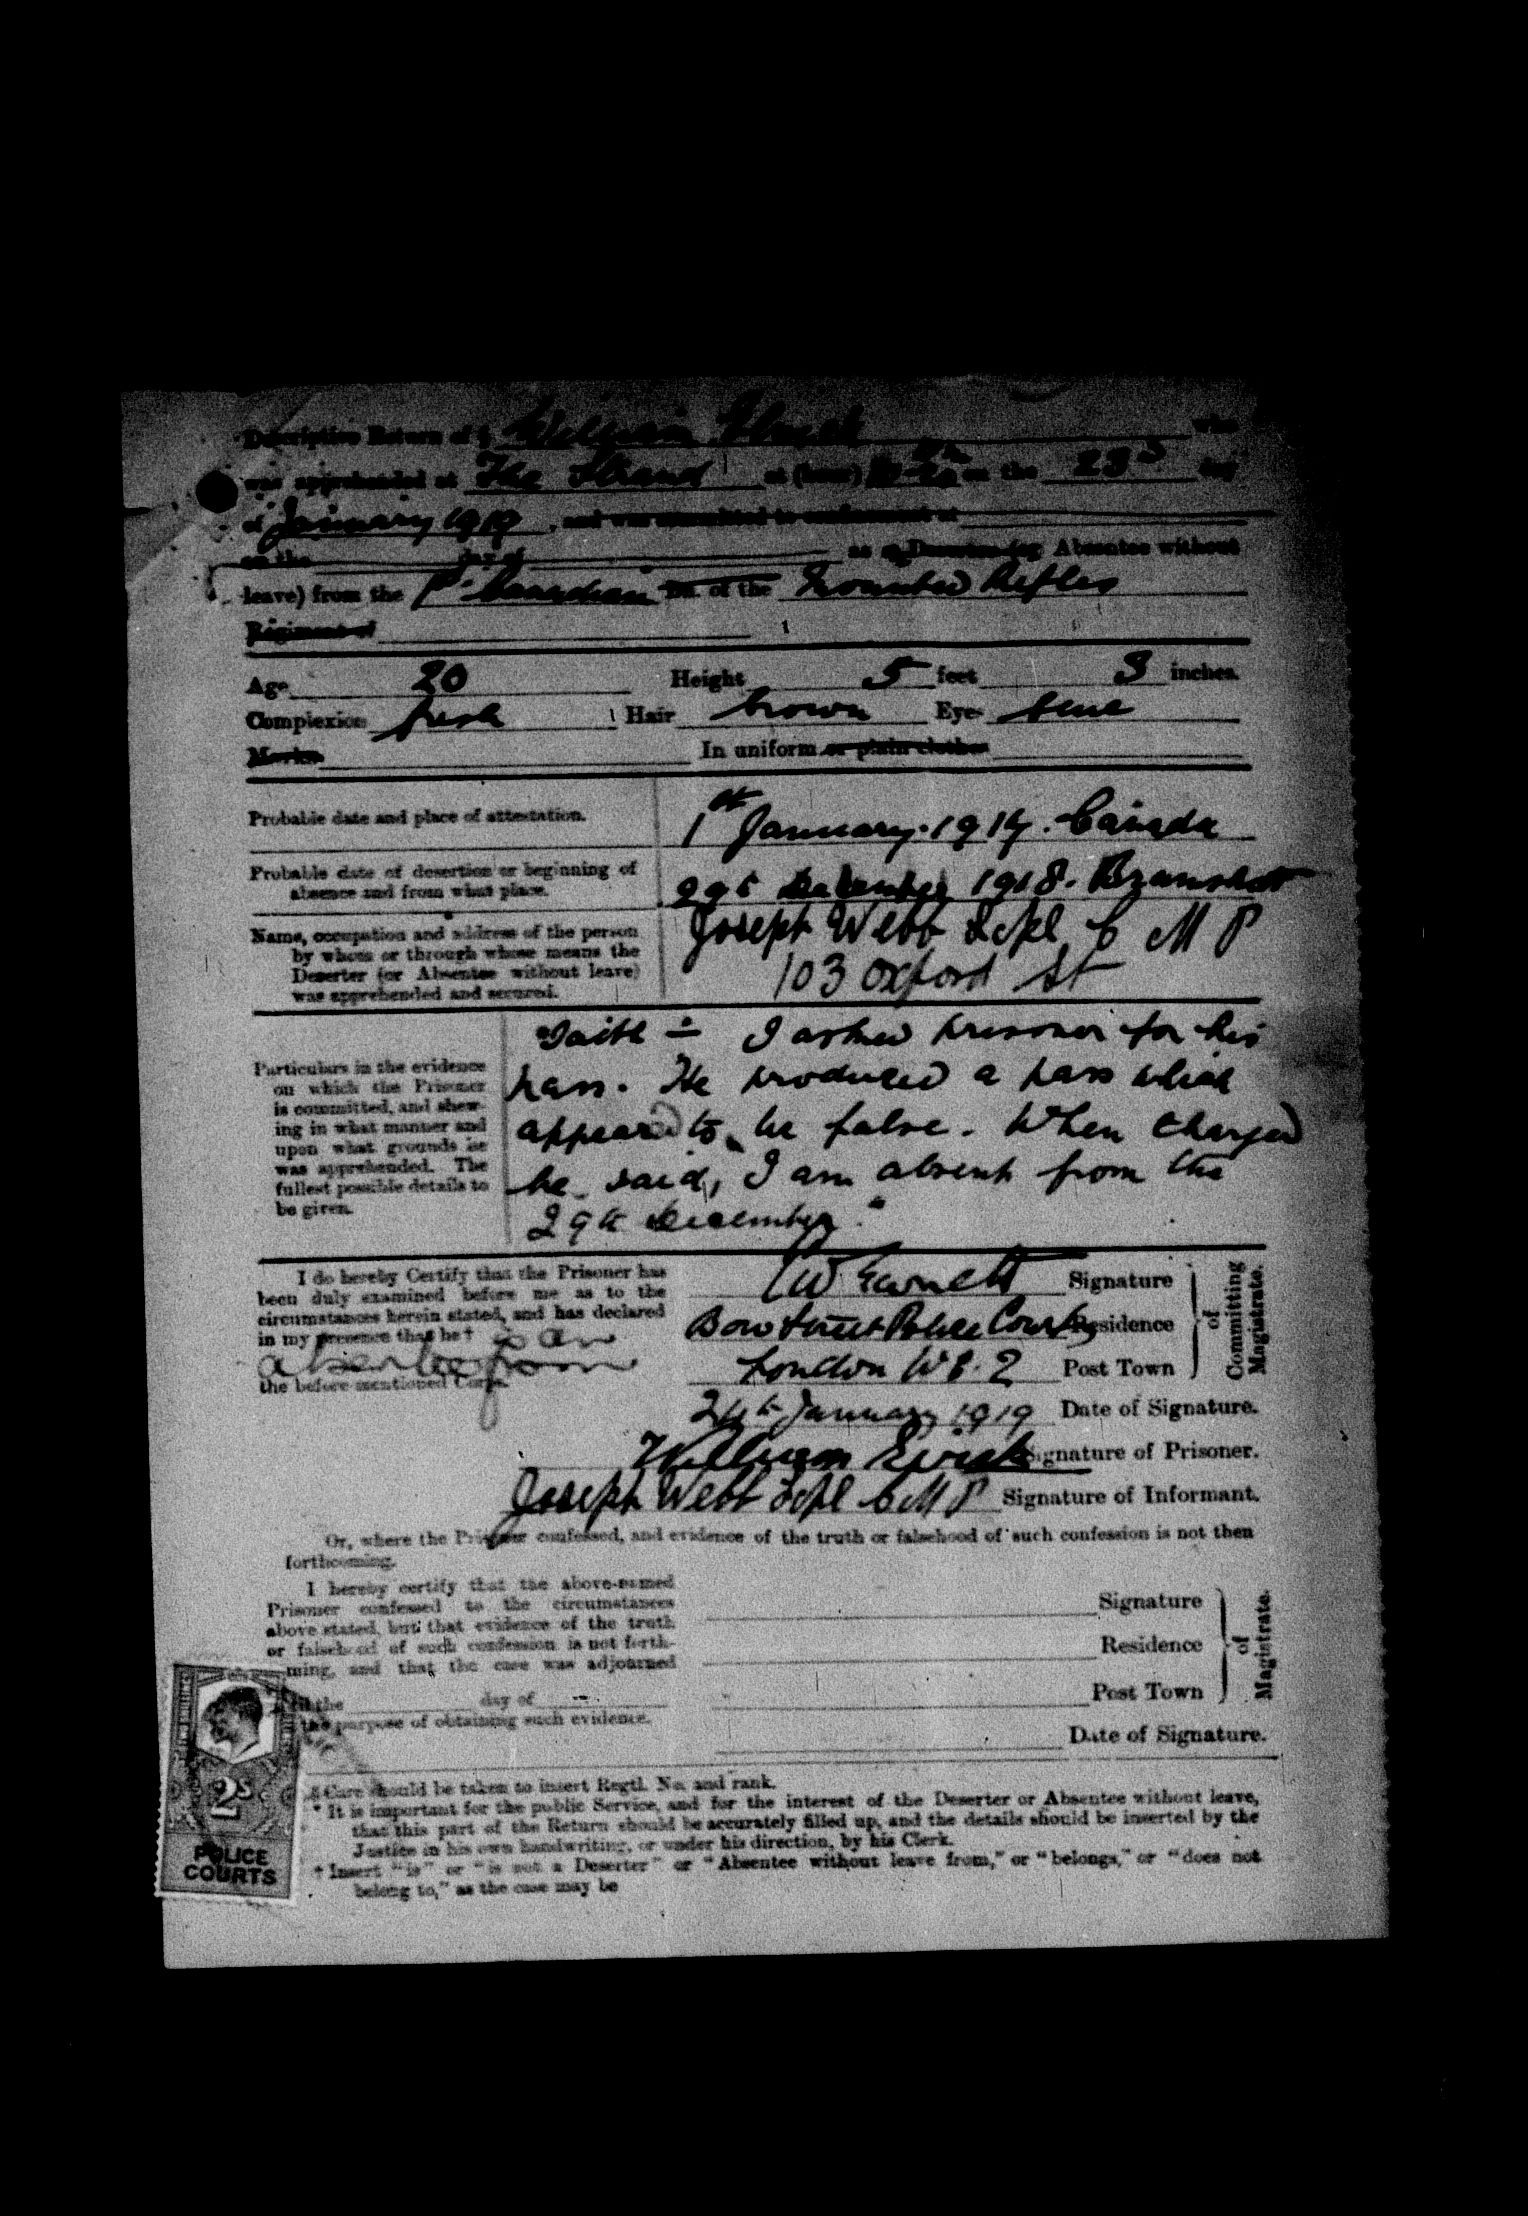 Descriptive Return of § William who
was apprehended at The Strand at (hour) on the 23 day
of January 1919, and was committed to confinement at
on the day of as a Deserter (or Absentee without
leave) from the Canadian Bn. of the Mounted Rifles
Regiment of
Age 20 Height 5 feet 3 inches.
Complexion fresh Hair brown Eyes blue
Marks In uniform or plain clothes
Probable date and place of attestation. 1st January. 191 . Canada
Probable date of desertion or beginning of
absence and from what place. 29th December 1918. Bramshott
Name, occupation and address of the person
by whom or through whose means the
Deserter (or Absentee without leave)
was apprehended and secured.
Joseph Webb L Cpl C M P
103 Oxford St
Particulars in the evidence
on which the Prisoner
is committed, and shew-
ing in what manner and
upon what grounds he
was apprehended. The
fullest possible details to
be given.
"Saith - I asked prisoner for his
pass. He produced a pass which
appeared to be false. When charged
he said, I am absent from the
29th December."
I do hereby Certify that the Prisoner has
been duly examined before me as to the
circumstances herein stated, and has declared
in my presence that he † is an
absentee from
the before-mentioned Corps.
W Signature
Bow Street Police Court Residence
London W C. 2 Post Town
of
Committing
Magistrate.
24th January 1919 Date of Signature.
William Signature of Prisoner.
Joseph Webb L Cpl C M P Signature of Informant.
Or, where the Prisoner confessed, and evidence of the truth or falsehood of such confession is not then
forthcoming.
I hereby certify that the above-named
Prisoner confessed to the circumstances
above stated, but that evidence of the truth
or falsehood of such confession is not forth-
coming, and that the case was adjourned
till the day of
the purpose of obtaining such evidence.
Signature
Residence
Post Town
of
Magistrate.
Date of Signature.
2s
POLICE
COURTS
§ Care should be taken to insert Regtl. No. and rank.
* It is important for the public Service, and for the interest of the Deserter or Absentee without leave,
that this part of the Return should be accurately filled up, and the details should be inserted by the
Justice in his own handwriting, or under his direction, by his Clerk.
† Insert "is" or "is not a Deserter" or "Absentee without leave from," or "belongs," or "does not
belong to," as the case may be